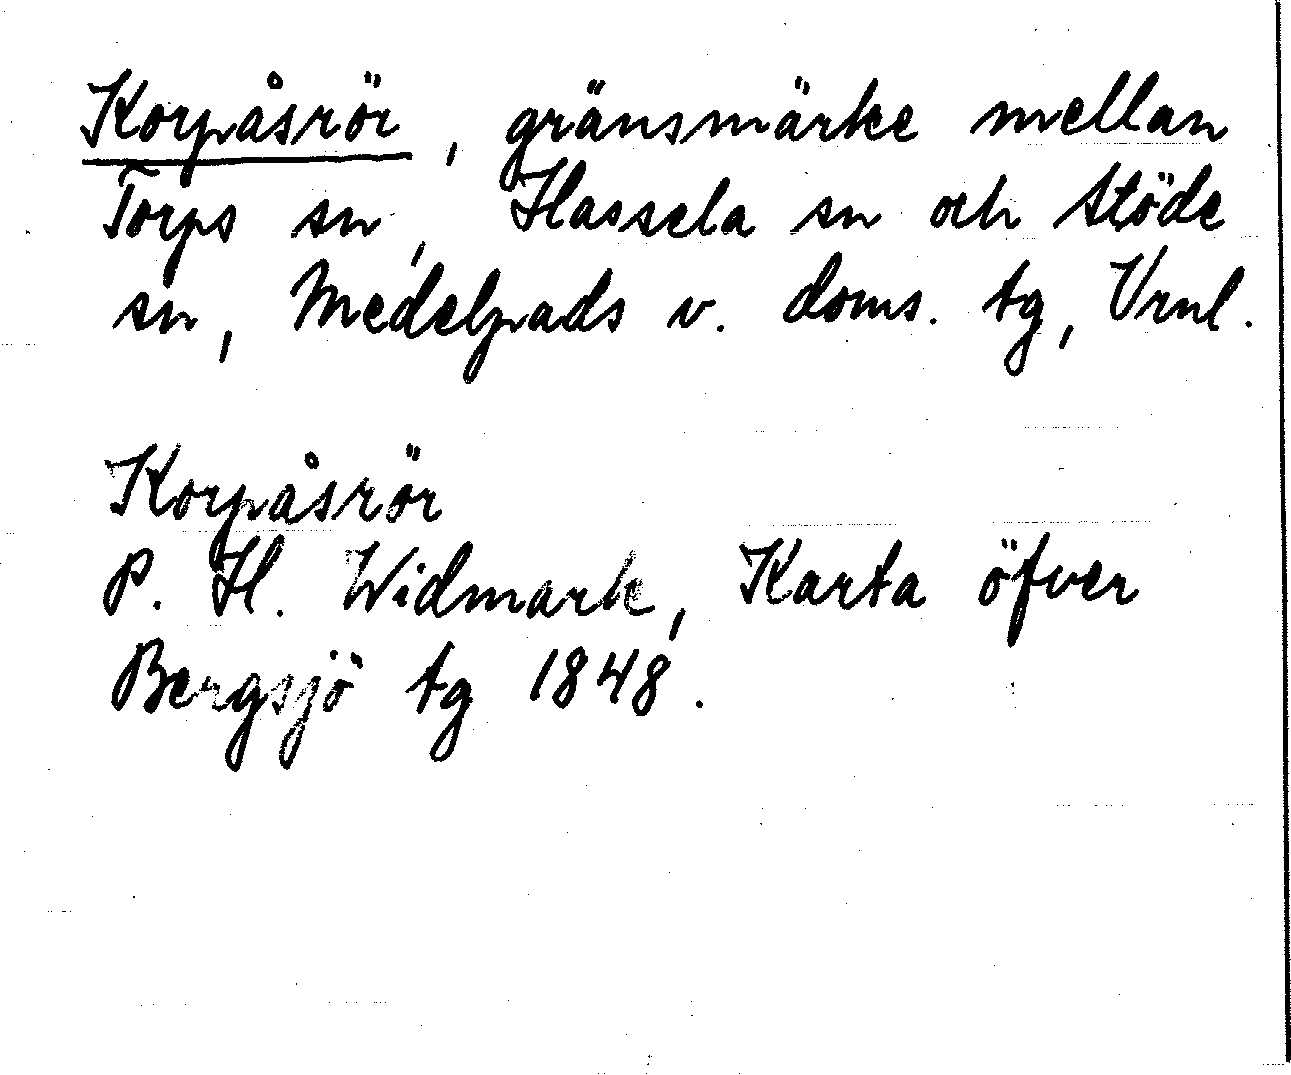 Korpåsrör, gränsmärke mellan
Torps sn, Hassela sn och Stöde
sn, Medelpads v. doms. tg, Vrnl.
Korpåsrör
P. H. Widmark, Karta öfver
Bergsjö tg 1848.